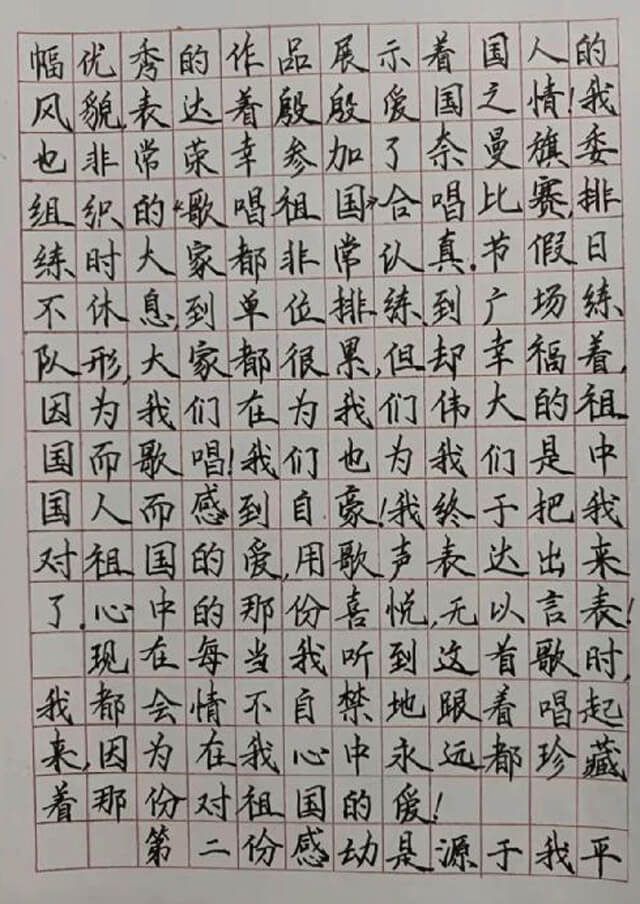 幅优秀的作品展示着国人的
风貌,表达着殷殷爱国之情!我
也非常荣幸参加了奈曼旗委
组织的“歌唱祖国”合唱比赛,排
练时大家都非常认真.节假日
不休息,到单位排练.到广场练
队形,大家都很累,但却幸福着,
因为我们在为我们伟大的祖
国而歌唱!我们也为我们是中
国人而感到自豪!我终于把我
对祖国的爱,用歌声表达出来
了.心中的那份喜悦,无以言表!
现在每当我听到这首歌时,
我都会情不自禁地跟着唱起
来,因为在我心中永远都珍藏
着那份对祖国的爱!
第二份感动是源于我平